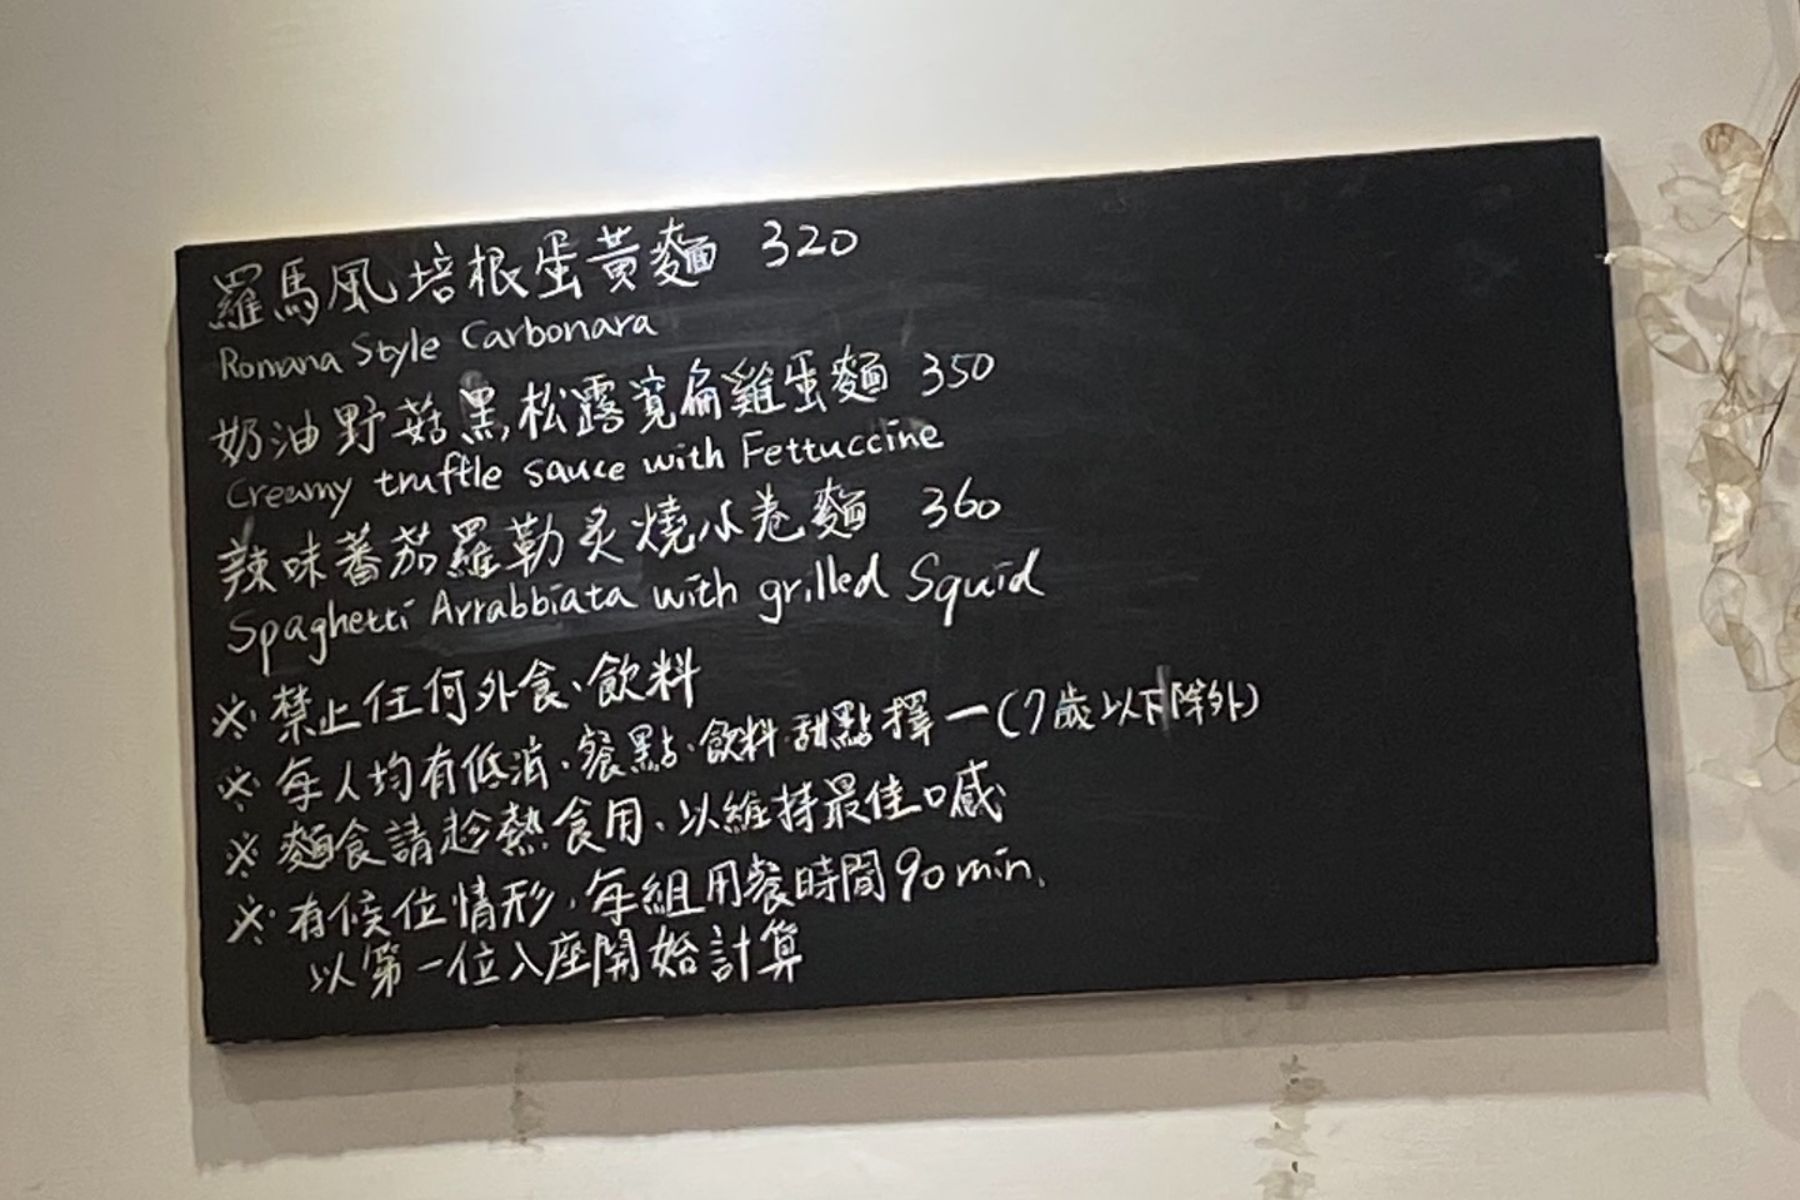 羅馬風培根蛋黃麵 320
Romana Style Carbonara
奶油野菇黑松露寬扁雞蛋麵 350
Creamy truffle sauce with Fettuccine
辣味蕃茄羅勒炙燒小卷麵 360
Spaghetti Arrabbiata with grilled Squid
※ 禁止任何外食、飲料
※ 每人均有低消、餐點、飲料、甜點擇一(7歲以下除外)
※ 麵食請趁熱食用、以維持最佳口感
※ 有候位情形, 每組用餐時間90min.
以第一位入座開始計算